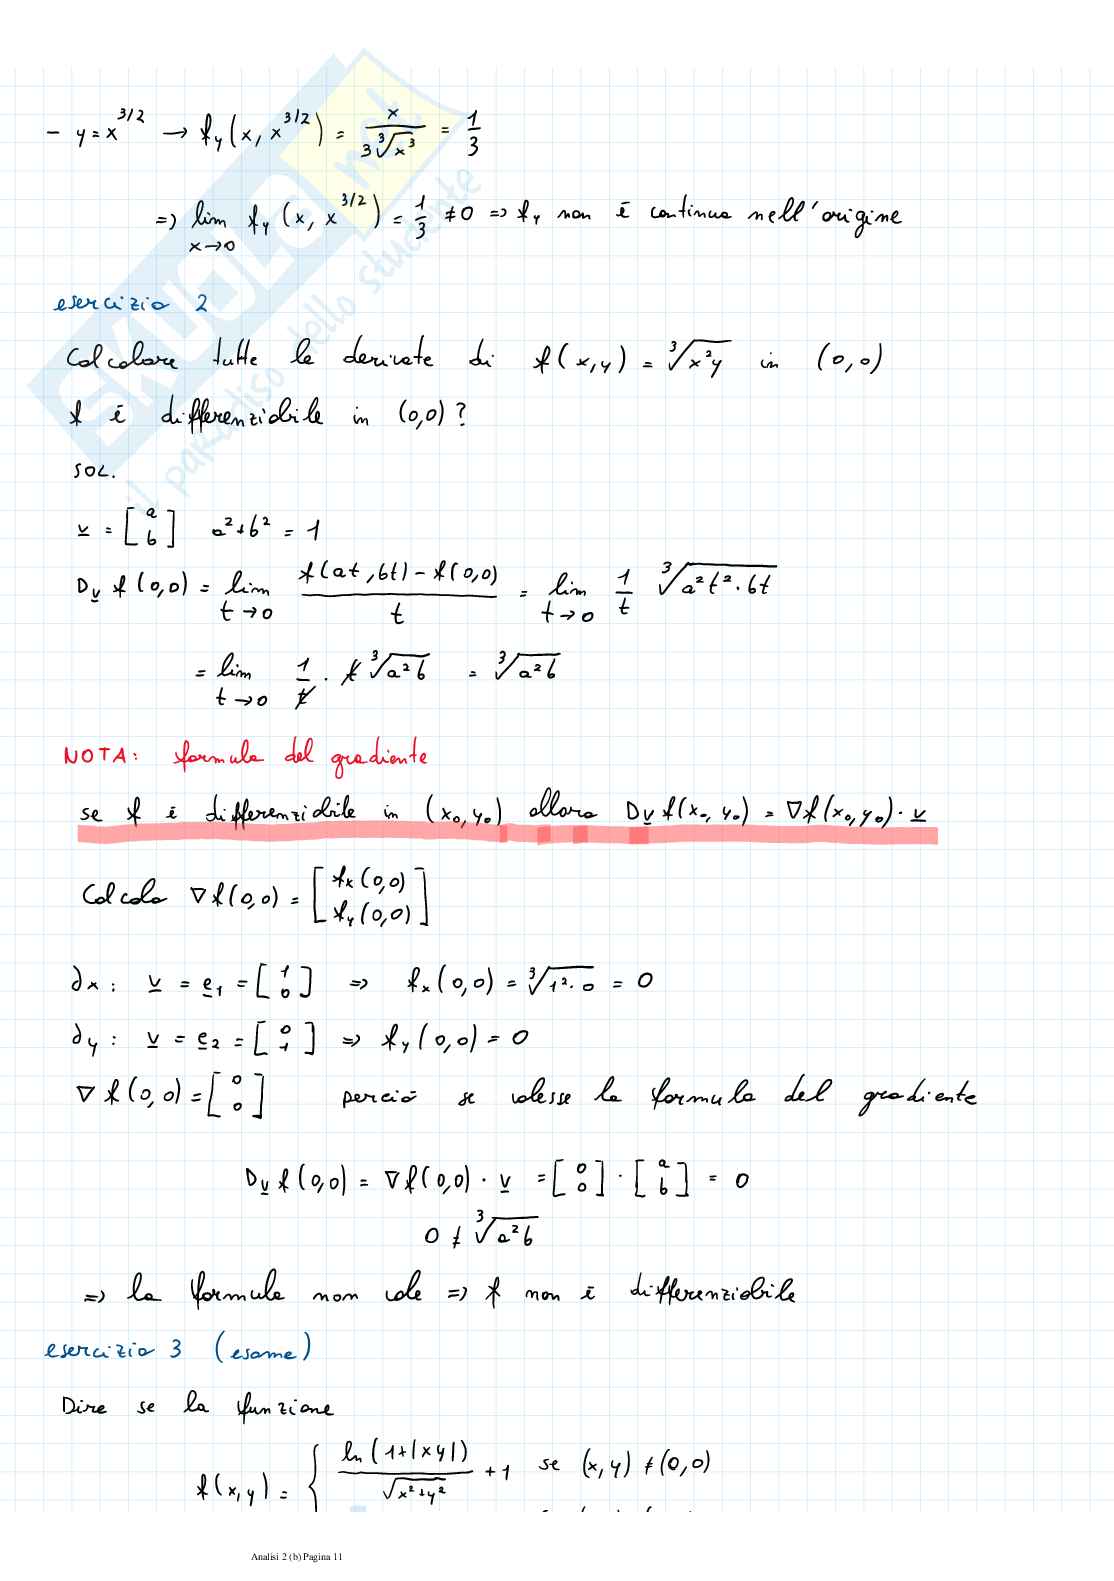 - y = x^{3/2} → f_y(x, x^{3/2}) = x / (3 ∛(x^3)) = 1/3
=> lim_{x→0} f_y(x, x^{3/2}) = 1/3 ≠ 0 => f_y non è continua nell'origine
esercizio 2
Calcolare tutte le derivate di f(x,y) = ∛(x²y) in (0,0)
f è differenziabile in (0,0)?
SOL.
v = [a b] a² + b² = 1
D_v f(0,0) = lim_{t→0} (f(at, bt) - f(0,0)) / t = lim_{t→0} 1/t ∛(a²t²·bt)
= lim_{t→0} 1/t · t ∛(a²b) = ∛(a²b)
NOTA: formula del gradiente
se f è differenziabile in (x₀,y₀) allora D_v f(x₀,y₀) = ∇f(x₀,y₀)·v
Calcolo ∇f(0,0) = [f_x(0,0) f_y(0,0)]
∂x: v = e₁ = [1 0] => f_x(0,0) = ∛(1²·0) = 0
∂y: v = e₂ = [0 1] => f_y(0,0) = 0
∇f(0,0) = [0 0] perciò se valesse la formula del gradiente
D_v f(0,0) = ∇f(0,0)·v = [0 0]·[a b] = 0
0 ≠ ∛(a²b)
=> la formula non vale => f non è differenziabile
esercizio 3 (esame)
Dire se la funzione
f(x,y) = { ln(1+|xy|) / √(x²+y²) + 1 se (x,y) ≠ (0,0)
SKUOLA.net
il paradiso dello studente
Analisi 2 (b) Pagina 11